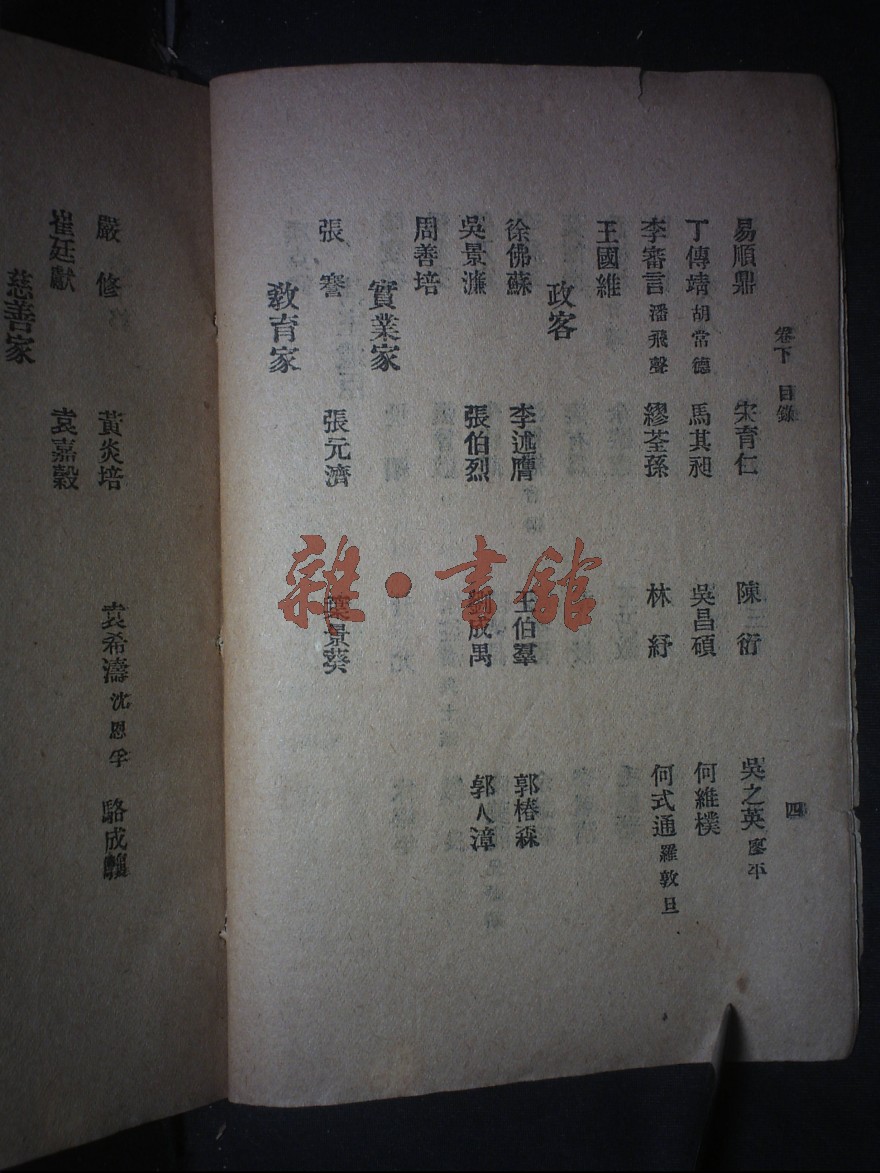 卷下 目錄 四
易順鼎 宋育仁 陳三衍 吳之英 廖平
丁傳靖 胡常德 馬其昶 吳昌碩 何維樸
李審言 潘飛聲 繆荃孫 林紓 何式通 羅敦旦
王國維
政客
徐佛蘇 李述膺 王伯羣 郭椿森
吳景濂 張伯烈 劉成禺 郭人漳
周善培
實業家
張謇 張元濟 葉景葵
敎育家
嚴修 黃炎培 袁希濤 沈恩孚 駱成驤
崔廷獻 袁嘉穀
慈善家
雜·書館